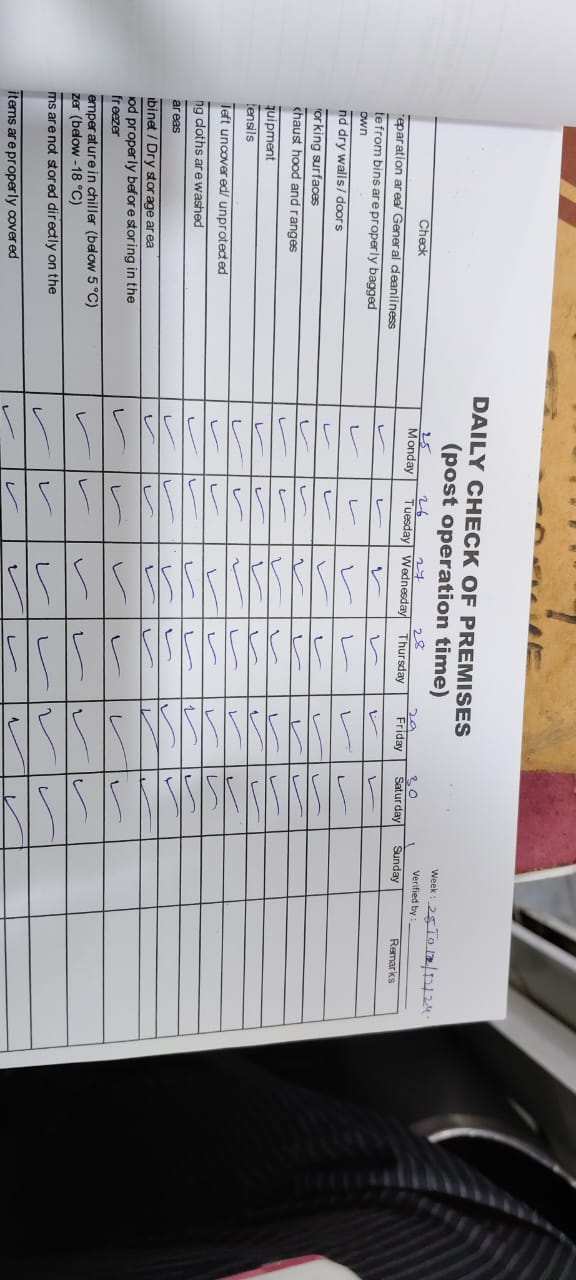 DAILY CHECK OF PREMISES
(post operation time)
Week : 25 To
Verified by :
25 26 27 28 29 30 1
Check Monday Tuesday Wednesday Thursday Friday Saturday Sunday Remarks
eparation area/ General cleanliness
te from bins are properly bagged
own
nd dry walls / doors
orking surfaces
chaust hood and ranges
quipment
tensils
left uncovered/ unprotected
ng cloths are washed
areas
binet / Dry storage area
ood properly before storing in the
freezer
emperature in chiller (below 5 °C)
zer (below -18 °C)
ms are not stored directly on the
items are properly covered